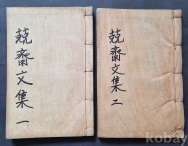 兢齋文集 一
兢齋文集 二
kobay